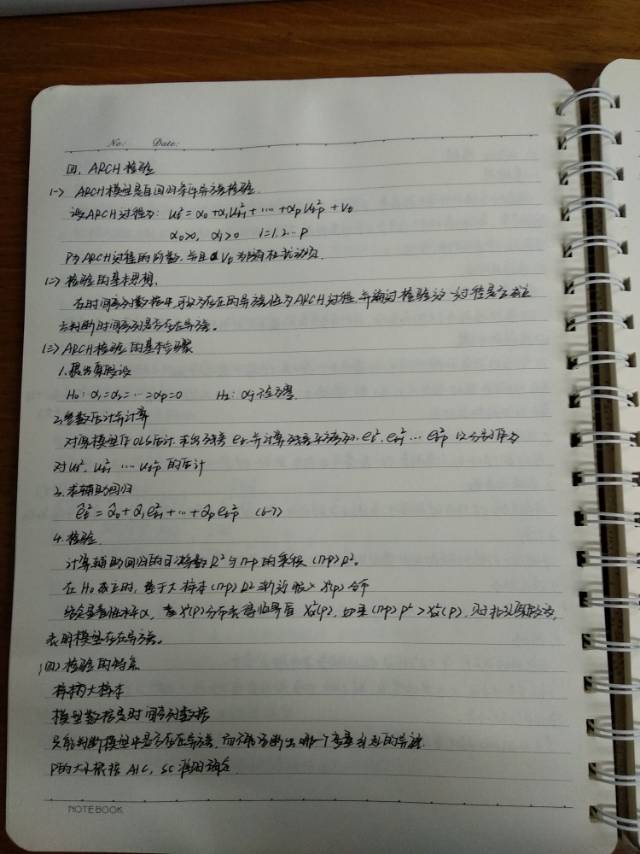 No:    Date:
四、ARCH检验
(一) ARCH模型是自回归条件异方差检验
设ARCH过程为: σt² = α0 + α1σt-1² + … + αpσt-p² + vt
α0>0, αi>0  i=1,2…p
P为ARCH过程的阶数,并且 vt为随机扰动项.
(二) 检验的基本思想.
在时间序列数据中,可认为存在的异方差性为ARCH过程,并通过检验这一过程是否成立
去判断时间序列是否存在异方差。
(三) ARCH检验的基本步骤
1.提出原假设
H0: α1=α2=…=αp=0    H1: αj不全为零
2.参数估计并计算
对原模型作OLS估计,求出残差et,并计算残差平方序列 et², et-1² … et-p² 以分别作为
对σt², σt-1² … σt-p² 的估计
3.求辅助回归
êt² = α̂0 + α̂1et-1² + … + α̂pet-p²  (6-7)
4.检验
计算辅助回归的可决系数R²与n-p的乘积 (n-p)R².
在H0成立时,基于大样本(n-p)R²渐近服从χ²(p)分布
给定显著性水平α,查χ²(p)分布表得临界值χα²(p),如果(n-p)R²>χα²(p),则拒绝原假设,
表明模型存在异方差。
(四) 检验的特点
样本为大样本
模型数据是时间序列数据
只能判断模型中是否存在异方差,而不能诊断出哪一个变量引起的异方差.
P的大小根据AIC, SC准则确定
NOTEBOOK